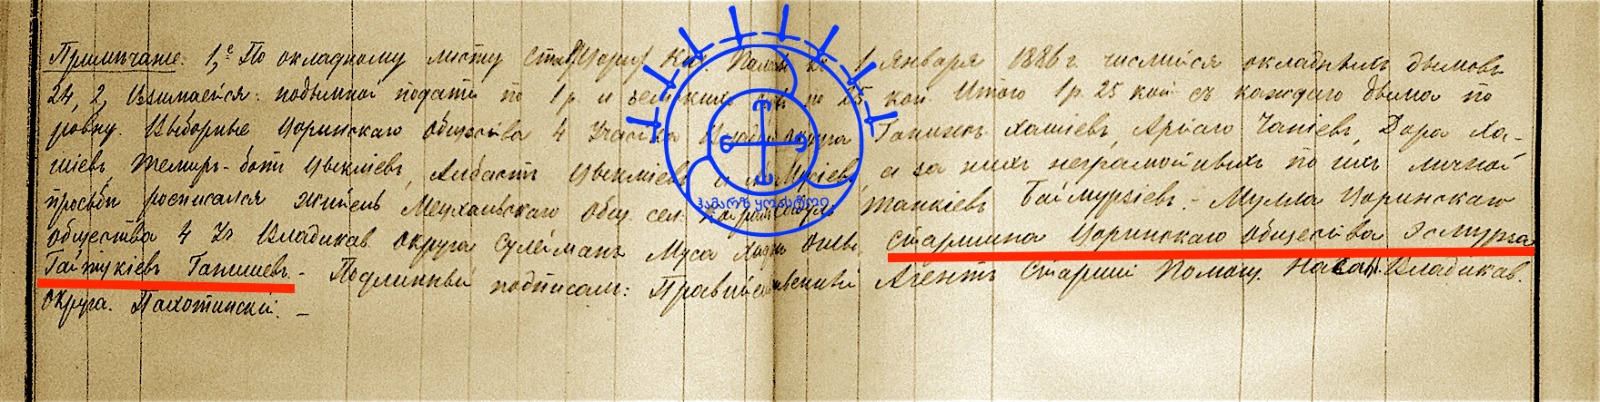 Примѣчанiе: 1, е По окладному листу Ставрополь Каз. Палаты къ 1 Января 1886 г. числится окладныхъ дымовъ
24, 2, Взимается: подымной подати по 1 р и земскихъ по 25 коп. Итого 1 р. 25 коп съ каждаго дыма по
ровну. Выборные Цоринскаго общества 4 Участка округа Хашiевъ, Чапiевъ, Дара Ха-
шiевъ, Темиръ-ботъ Цыклiевъ, Албастъ Цыклiевъ и Мусiевъ, а за нихъ неграмотныхъ по ихъ личной
просьбѣ росписался житель Общ. сел. Танкiевъ Баймурзiевъ. - Мулла Цоринскаго
общества 4 Уч Владикав. округа Сулейманъ Муса Хаджи Старшина Цоринскаго общества Эсмурза
Гайтукiевъ Ганишевъ. - Подлинный подписали: Правительственный Агентъ Старшiй Помощ. Начал. Владикав.
Округа. Пахотинскiй. -
ჰამარზ ყოსტოი